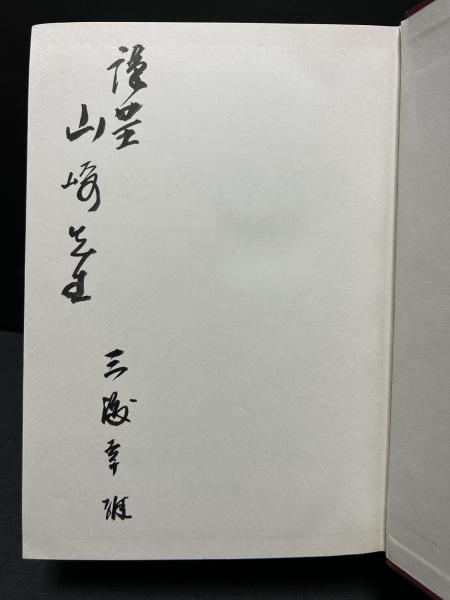 謹呈
山崎先生
三浚幸雄